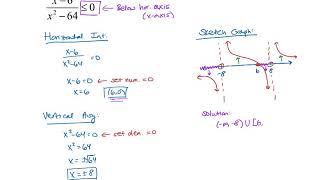 x-6
x²-64 ≤0 ← Below hor. axis
(x-axis)
Horizontal Int:
x-6
x²-64 = 0
x-6=0 ← set num. = 0
x=6 (6,0)
Vertical Asy:
x²-64=0 ← set den. = 0
x²=64
x=±√64
x=±8
Sketch Graph:
-8 6 8
Solution:
(-∞,-8) ∪ [6,